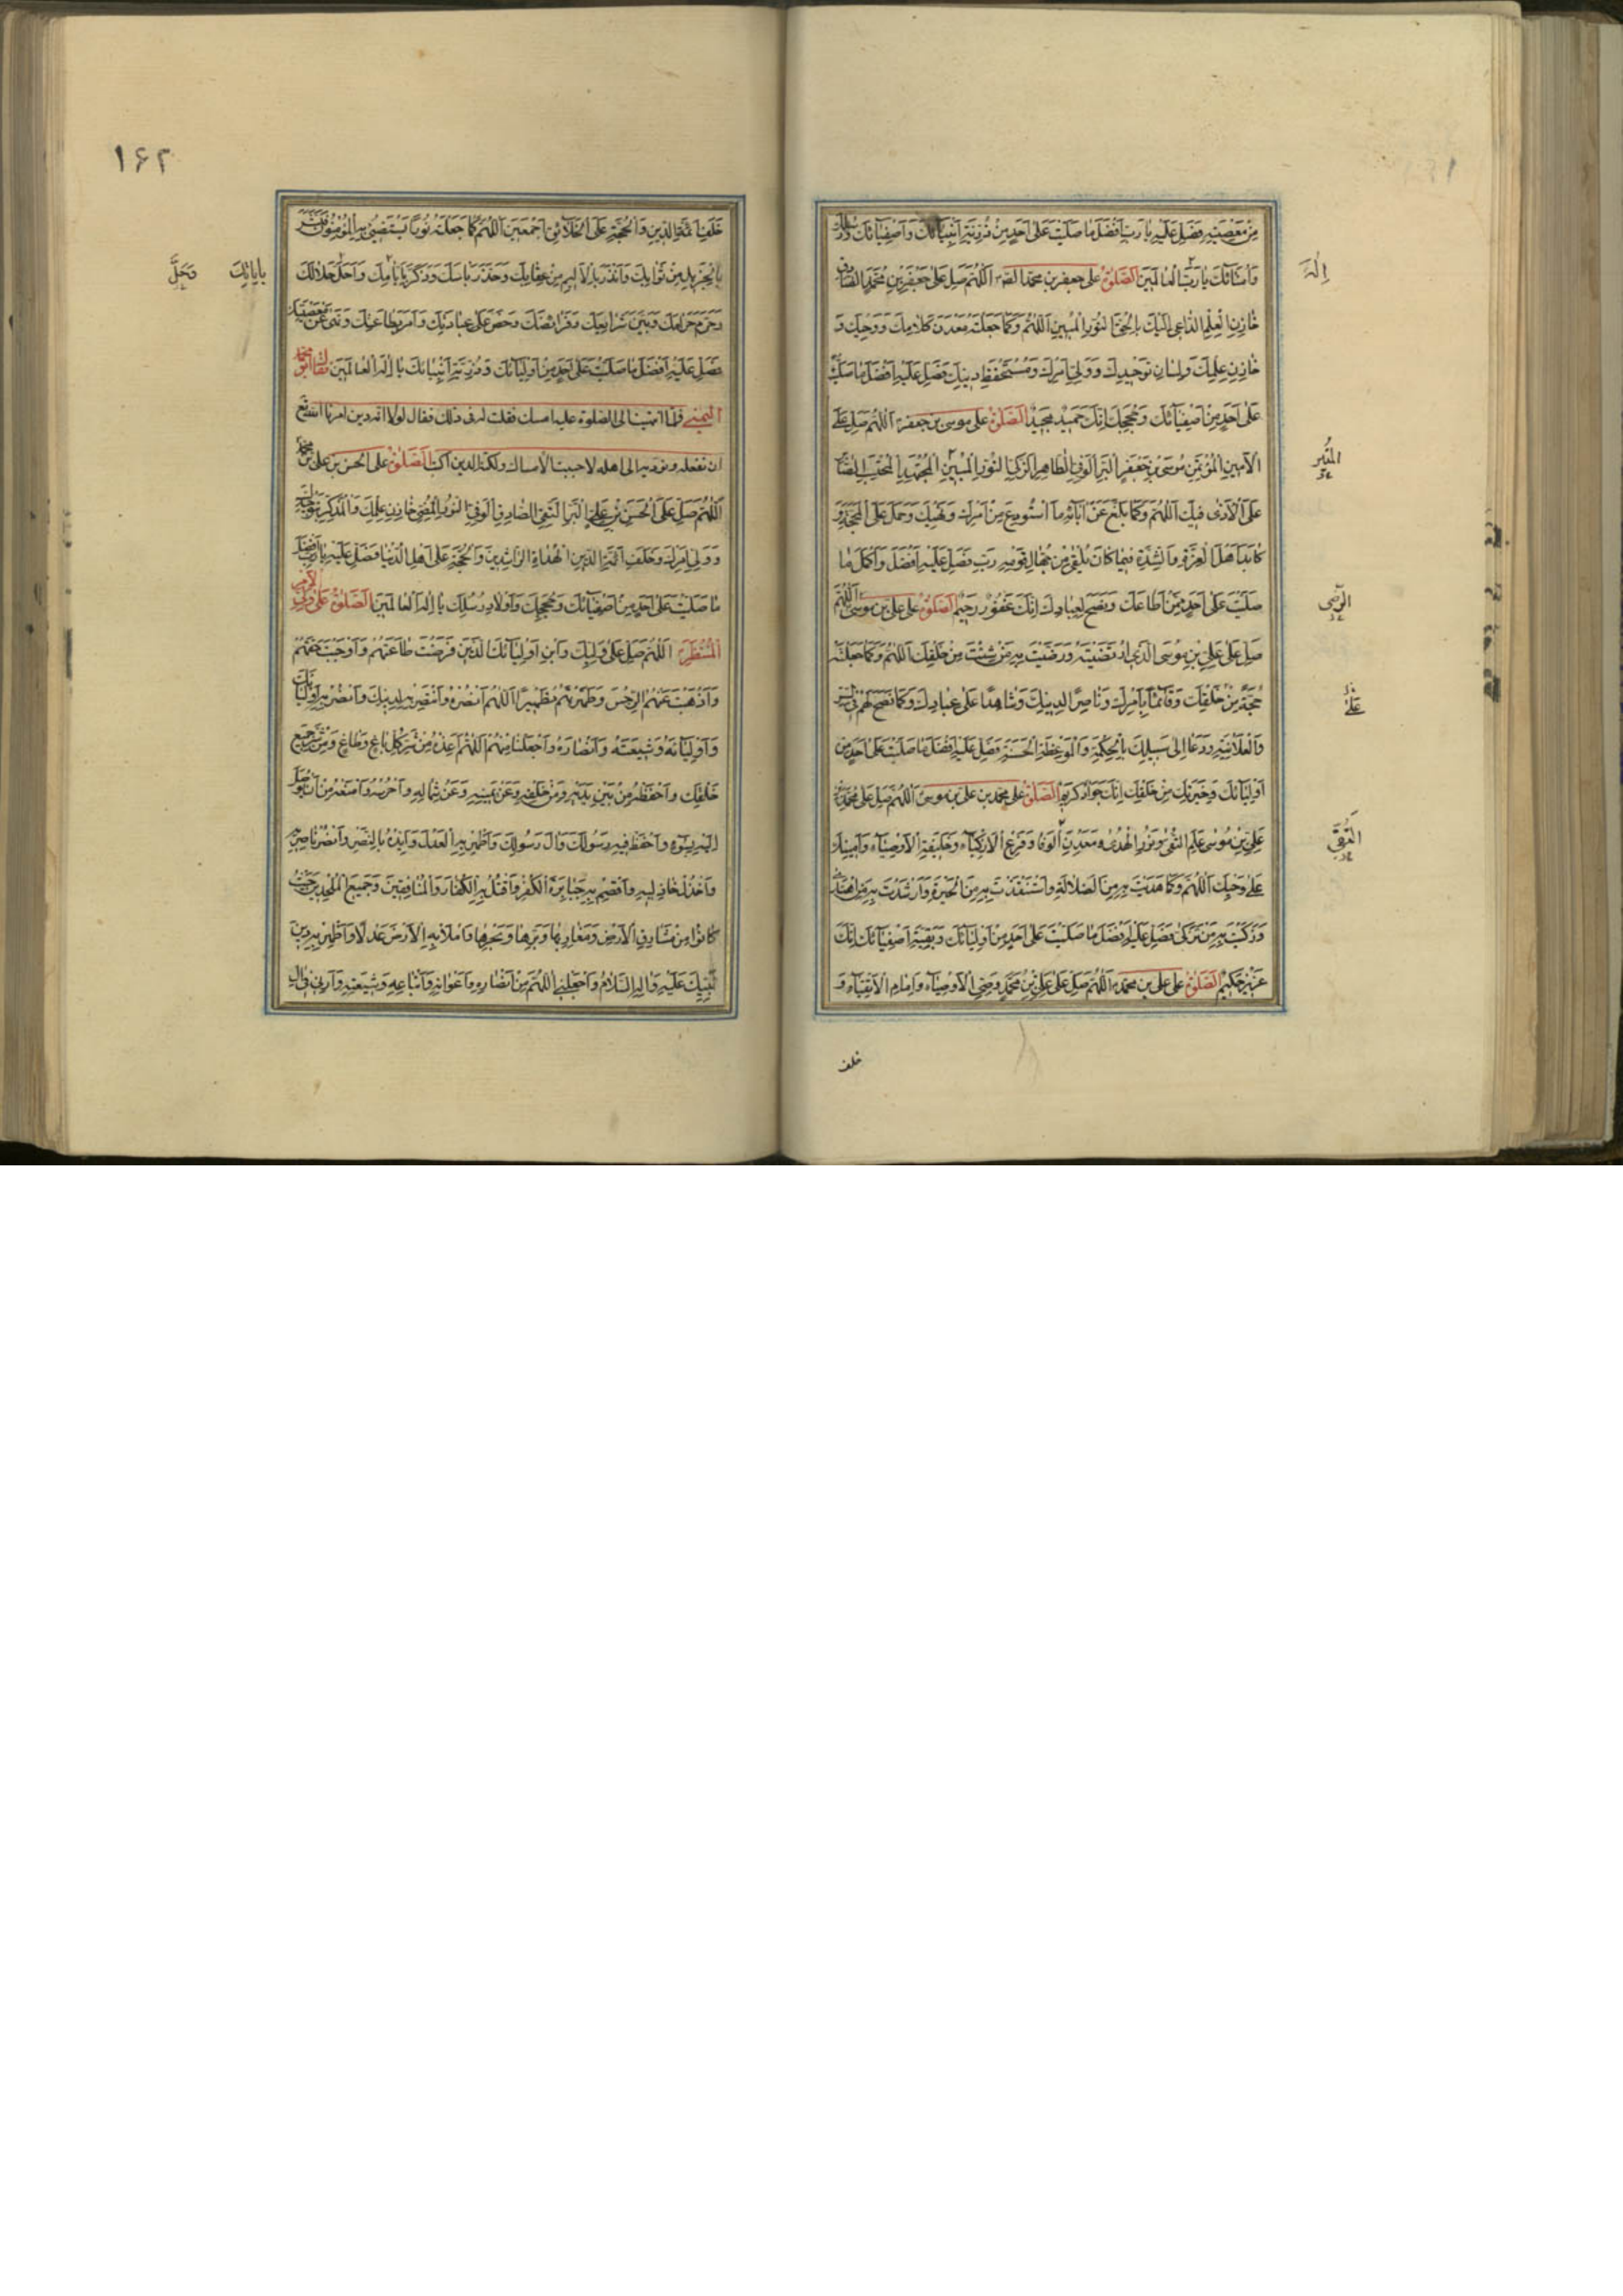 مِنْ مَعْصِيَتِهِ فَصَلِّ عَلَيْهِ يا رَبِّ اَفْضَلَ ما صَلَّيْتَ عَلى اَحَدٍ مِنْ ذُرِّيَّةِ اَنْبِيائِكَ وَاَصْفِيائِكَ وَرُسُلِكَ
وَاُمَنائِكَ يا رَبَّ الْعالَمينَ اَلصَّلوةُ على جعفر بن محمد الصّـ اَللّهُمَّ صَلِّ عَلى جَعْفَرِ بْنِ مُحَمَّدٍ الصّادِقِ
اِلهَ
خازِنِ الْعِلْمِ الدّاعي اِلَيْكَ بِالْحَقِّ النُّورِ الْمُبينِ اَللّهُمَّ وَكَما جَعَلْتَهُ مَعْدِنَ كَلامِكَ وَوَحْيِكَ وَ
خازِنَ عِلْمِكَ وَلِسانَ تَوْحيدِكَ وَوَلِيَّ اَمْرِكَ وَمُسْتَحْفَظَ دينِكَ فَصَلِّ عَلَيْهِ اَفْضَلَ ما صَلَّيْتَ
عَلى اَحَدٍ مِنْ اَصْفِيائِكَ وَحُجَجِكَ اِنَّكَ حَميدٌ مَجيدٌ اَلصَّلوةُ على موسى بن جعفر اَللّهُمَّ صَلِّ عَلَى
الْاَمينِ الْمُؤْتَمَنِ مُوسَى بْنِ جَعْفَرٍ الْبَرِّ الْوَفِيِّ الطّاهِرِ الزَّكِيِّ النُّورِ الْمُبينِ الْمُجْتَهِدِ الْمُحْتَسِبِ الصّابِرِ
الْمُنيرِ
عَلَى الْاَذى فيكَ اَللّهُمَّ وَكَما بَلَّغَ عَنْ آبائِهِ ما اسْتُودِعَ مِنْ اَمْرِكَ وَنَهْيِكَ وَحَمَلَ عَلَى الْمَحَجَّةِ وَ
كابَدَ اَهْلَ الْعِزَّةِ وَالشِّدَّةِ فيما كانَ يَلْقى مِنْ جُهّالِ قَوْمِهِ رَبِّ فَصَلِّ عَلَيْهِ اَفْضَلَ وَاَكْمَلَ ما
صَلَّيْتَ عَلى اَحَدٍ مِمَّنْ اَطاعَكَ وَنَصَحَ لِعِبادِكَ اِنَّكَ غَفُورٌ رَحيمٌ اَلصَّلوةُ على علي بن موسى اَللّهُمَّ
الرِّضى
صَلِّ عَلى عَلِيِّ بْنِ مُوسَى الَّذِي ارْتَضَيْتَهُ وَرَضَّيْتَ بِهِ مَنْ شِئْتَ مِنْ خَلْقِكَ اَللّهُمَّ وَكَما جَعَلْتَهُ
حُجَّةً عَلى خَلْقِكَ وَقائِماً بِاَمْرِكَ وَناصِراً لِدينِكَ وَشاهِداً عَلى عِبادِكَ وَكَما نَصَحَ لَهُمْ فِي السِّرِّ
عَلى
وَالْعَلانِيَةِ وَدَعا اِلى سَبيلِكَ بِالْحِكْمَةِ وَالْمَوْعِظَةِ الْحَسَنَةِ فَصَلِّ عَلَيْهِ اَفْضَلَ ما صَلَّيْتَ عَلى اَحَدٍ مِنْ
اَوْلِيائِكَ وَخِيَرَتِكَ مِنْ خَلْقِكَ اِنَّكَ جَوادٌ كَريمٌ اَلصَّلوةُ على محمد بن علي بن موسى اَللّهُمَّ صَلِّ عَلى مُحَمَّدِ بْنِ
عَلِيِّ بْنِ مُوسى عَلَمِ التُّقى وَنُورِ الْهُدى وَمَعْدِنِ الْوَفا وَفَرْعِ الْاَزْكِياءِ وَخَليفَةِ الْاَوْصِياءِ وَاَمينِكَ
عَلى وَحْيِكَ اَللّهُمَّ وَكَما هَدَيْتَ بِهِ مِنَ الضَّلالَةِ وَاسْتَنْقَذْتَ بِهِ مِنَ الْحَيْرَةِ وَاَرْشَدْتَ بِهِ مَنِ اهْتَدى
وَزَكَّيْتَ بِهِ مَنْ تَزَكّى فَصَلِّ عَلَيْهِ اَفْضَلَ ما صَلَّيْتَ عَلى اَحَدٍ مِنْ اَوْلِيائِكَ وَبَقِيَّةِ اَصْفِيائِكَ اِنَّكَ
عَزيزٌ حَكيمٌ اَلصَّلوةُ على علي بن محمد اَللّهُمَّ صَلِّ عَلى عَلِيِّ بْنِ مُحَمَّدٍ وَصِيِّ الْاَوْصِياءِ وَاِمامِ الْاَتْقِياءِ وَ
خلف
١۶٢
خَلَفِ اَئِمَّةِ الدّينِ وَالْحُجَّةِ عَلَى الْخَلائِقِ اَجْمَعينَ اَللّهُمَّ كَما جَعَلْتَهُ نُوراً يَسْتَضيءُ بِهِ الْمُؤْمِنُونَ فَبَشَّرَ
بِالْجَزيلِ مِنْ ثَوابِكَ وَاَنْذَرَ بِالْاَليمِ مِنْ عِقابِكَ وَحَذَّرَ بَأْسَكَ وَذَكَّرَ بِاَيّامِكَ وَاَحَلَّ حَلالَكَ
بِاياتِكَ وَحَلَّلَ
وَحَرَّمَ حَرامَكَ وَبَيَّنَ شَرايِعَكَ وَفَرائِضَكَ وَحَضَّ عَلى عِبادَتِكَ وَاَمَرَ بِطاعَتِكَ وَنَهى عَنْ مَعْصِيَتِكَ
فَصَلِّ عَلَيْهِ اَفْضَلَ ما صَلَّيْتَ عَلى اَحَدٍ مِنْ اَوْلِيائِكَ وَذُرِّيَّةِ اَنْبِيائِكَ يا اِلهَ الْعالَمينَ قال ابو محمد
اليمني فلما انتهيت الى الصلوة عليه امسك فقلت له في ذلك فقال لولا انه دين امرنا الله
ان نفعله ونؤديه الى اهله لاحببت الامساك ولكنه الدين اكتب اَلصَّلوةُ على الحسن بن علي بن محمد
اَللّهُمَّ صَلِّ عَلَى الْحَسَنِ بْنِ عَلِيٍّ الْبَرِّ التَّقِيِّ الصّادِقِ الْوَفِيِّ النُّورِ الْمُضيءِ خازِنِ عِلْمِكَ وَالْمُذَكِّرِ بِتَوْحيدِكَ
وَوَلِيِّ اَمْرِكَ وَخَلَفِ اَئِمَّةِ الدّينِ الْهُداةِ الرّاشِدينَ وَالْحُجَّةِ عَلى اَهْلِ الدُّنْيا فَصَلِّ عَلَيْهِ يا رَبِّ اَفْضَلَ
ما صَلَّيْتَ عَلى اَحَدٍ مِنْ اَصْفِيائِكَ وَحُجَجِكَ وَاَوْلادِ رُسُلِكَ يا اِلهَ الْعالَمينَ اَلصَّلوةُ عَلى وَلِيِّ الْاَمْرِ
الْمُنْتَظَرِ اَللّهُمَّ صَلِّ عَلى وَلِيِّكَ وَابْنِ اَوْلِيائِكَ الَّذينَ فَرَضْتَ طاعَتَهُمْ وَاَوْجَبْتَ حَقَّهُمْ
وَاَذْهَبْتَ عَنْهُمُ الرِّجْسَ وَطَهَّرْتَهُمْ تَطْهيراً اَللّهُمَّ انْصُرْهُ وَانْتَصِرْ بِهِ لِدينِكَ وَانْصُرْ بِهِ اَوْلِيائَكَ
وَاَوْلِيائَهُ وَشيعَتَهُ وَاَنْصارَهُ وَاجْعَلْنا مِنْهُمْ اَللّهُمَّ اَعِذْهُ مِنْ شَرِّ كُلِّ باغٍ وَطاغٍ وَمِنْ شَرِّ جَميعِ
خَلْقِكَ وَاحْفَظْهُ مِنْ بَيْنِ يَدَيْهِ وَمِنْ خَلْفِهِ وَعَنْ يَمينِهِ وَعَنْ شِمالِهِ وَاحْرُسْهُ وَامْنَعْهُ مِنْ اَنْ يُوصَلَ
اِلَيْهِ بِسُوءٍ وَاحْفَظْ فيهِ رَسُولَكَ وَآلَ رَسُولِكَ وَاَظْهِرْ بِهِ الْعَدْلَ وَاَيِّدْهُ بِالنَّصْرِ وَانْصُرْ ناصِريهِ
وَاخْذُلْ خاذِليهِ وَاقْصِمْ بِهِ جَبابِرَةَ الْكُفْرِ وَاقْتُلْ بِهِ الْكُفّارَ وَالْمُنافِقينَ وَجَميعَ الْمُلْحِدينَ حَيْثُ
كانُوا مِنْ مَشارِقِ الْاَرْضِ وَمَغارِبِها وَبَرِّها وَبَحْرِها وَامْلَأْ بِهِ الْاَرْضَ عَدْلاً وَاَظْهِرْ بِهِ دينَ
نَبِيِّكَ عَلَيْهِ وَآلِهِ السَّلامُ وَاجْعَلْنِي اَللّهُمَّ مِنْ اَنْصارِهِ وَاَعْوانِهِ وَاَتْباعِهِ وَشيعَتِهِ وَاَرِني في آلِ